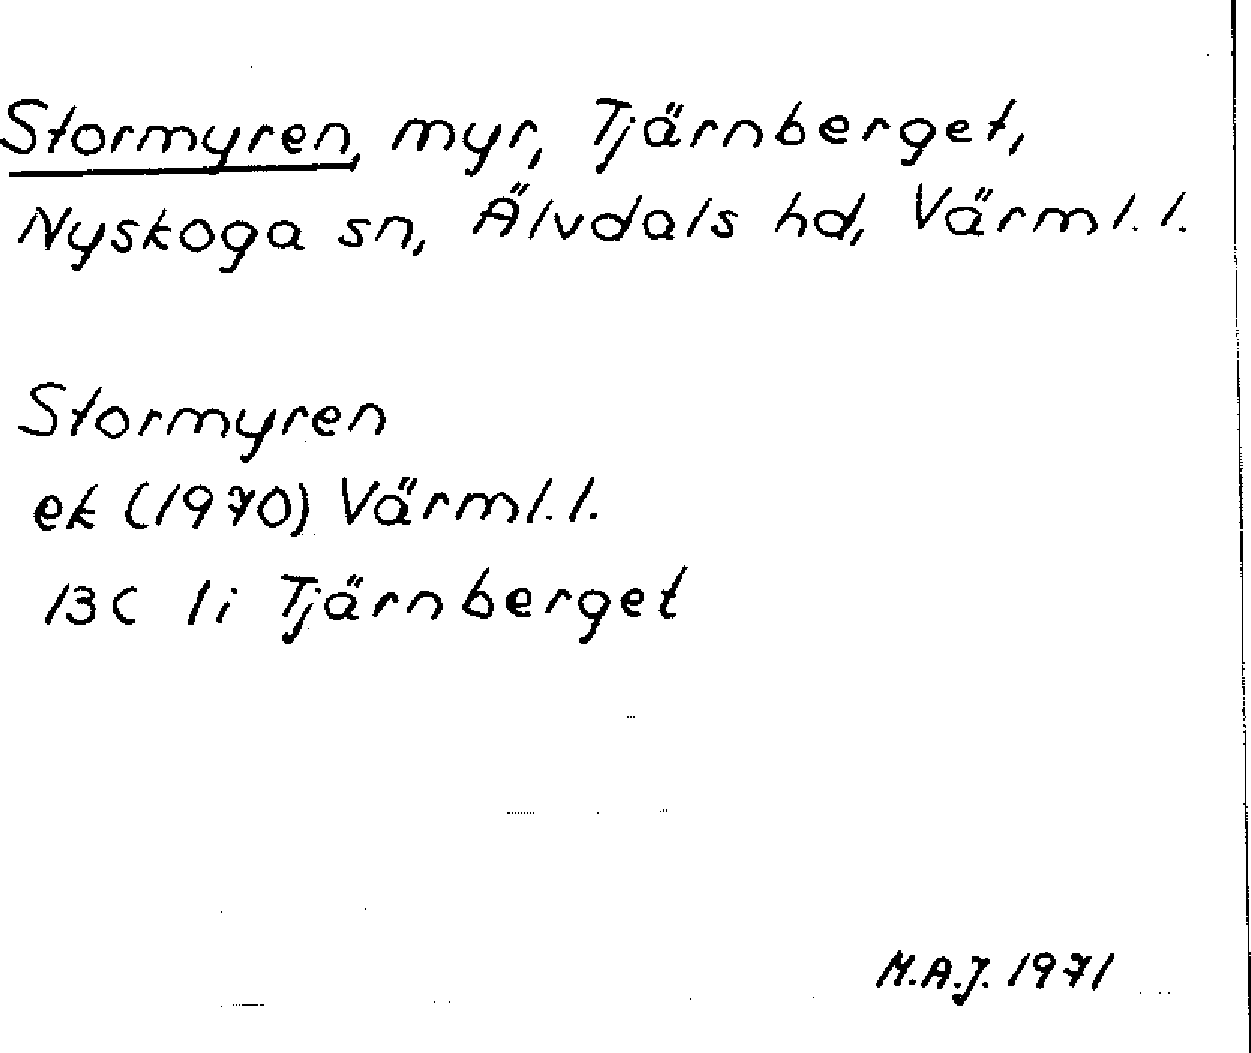 Stormyren, myr, Tjärnberget,
Nyskoga sn, Älvdals hd, Värml. l.
Stormyren
ek (1970) Värml. l.
13C 1i Tjärnberget
M.A.J. 1971